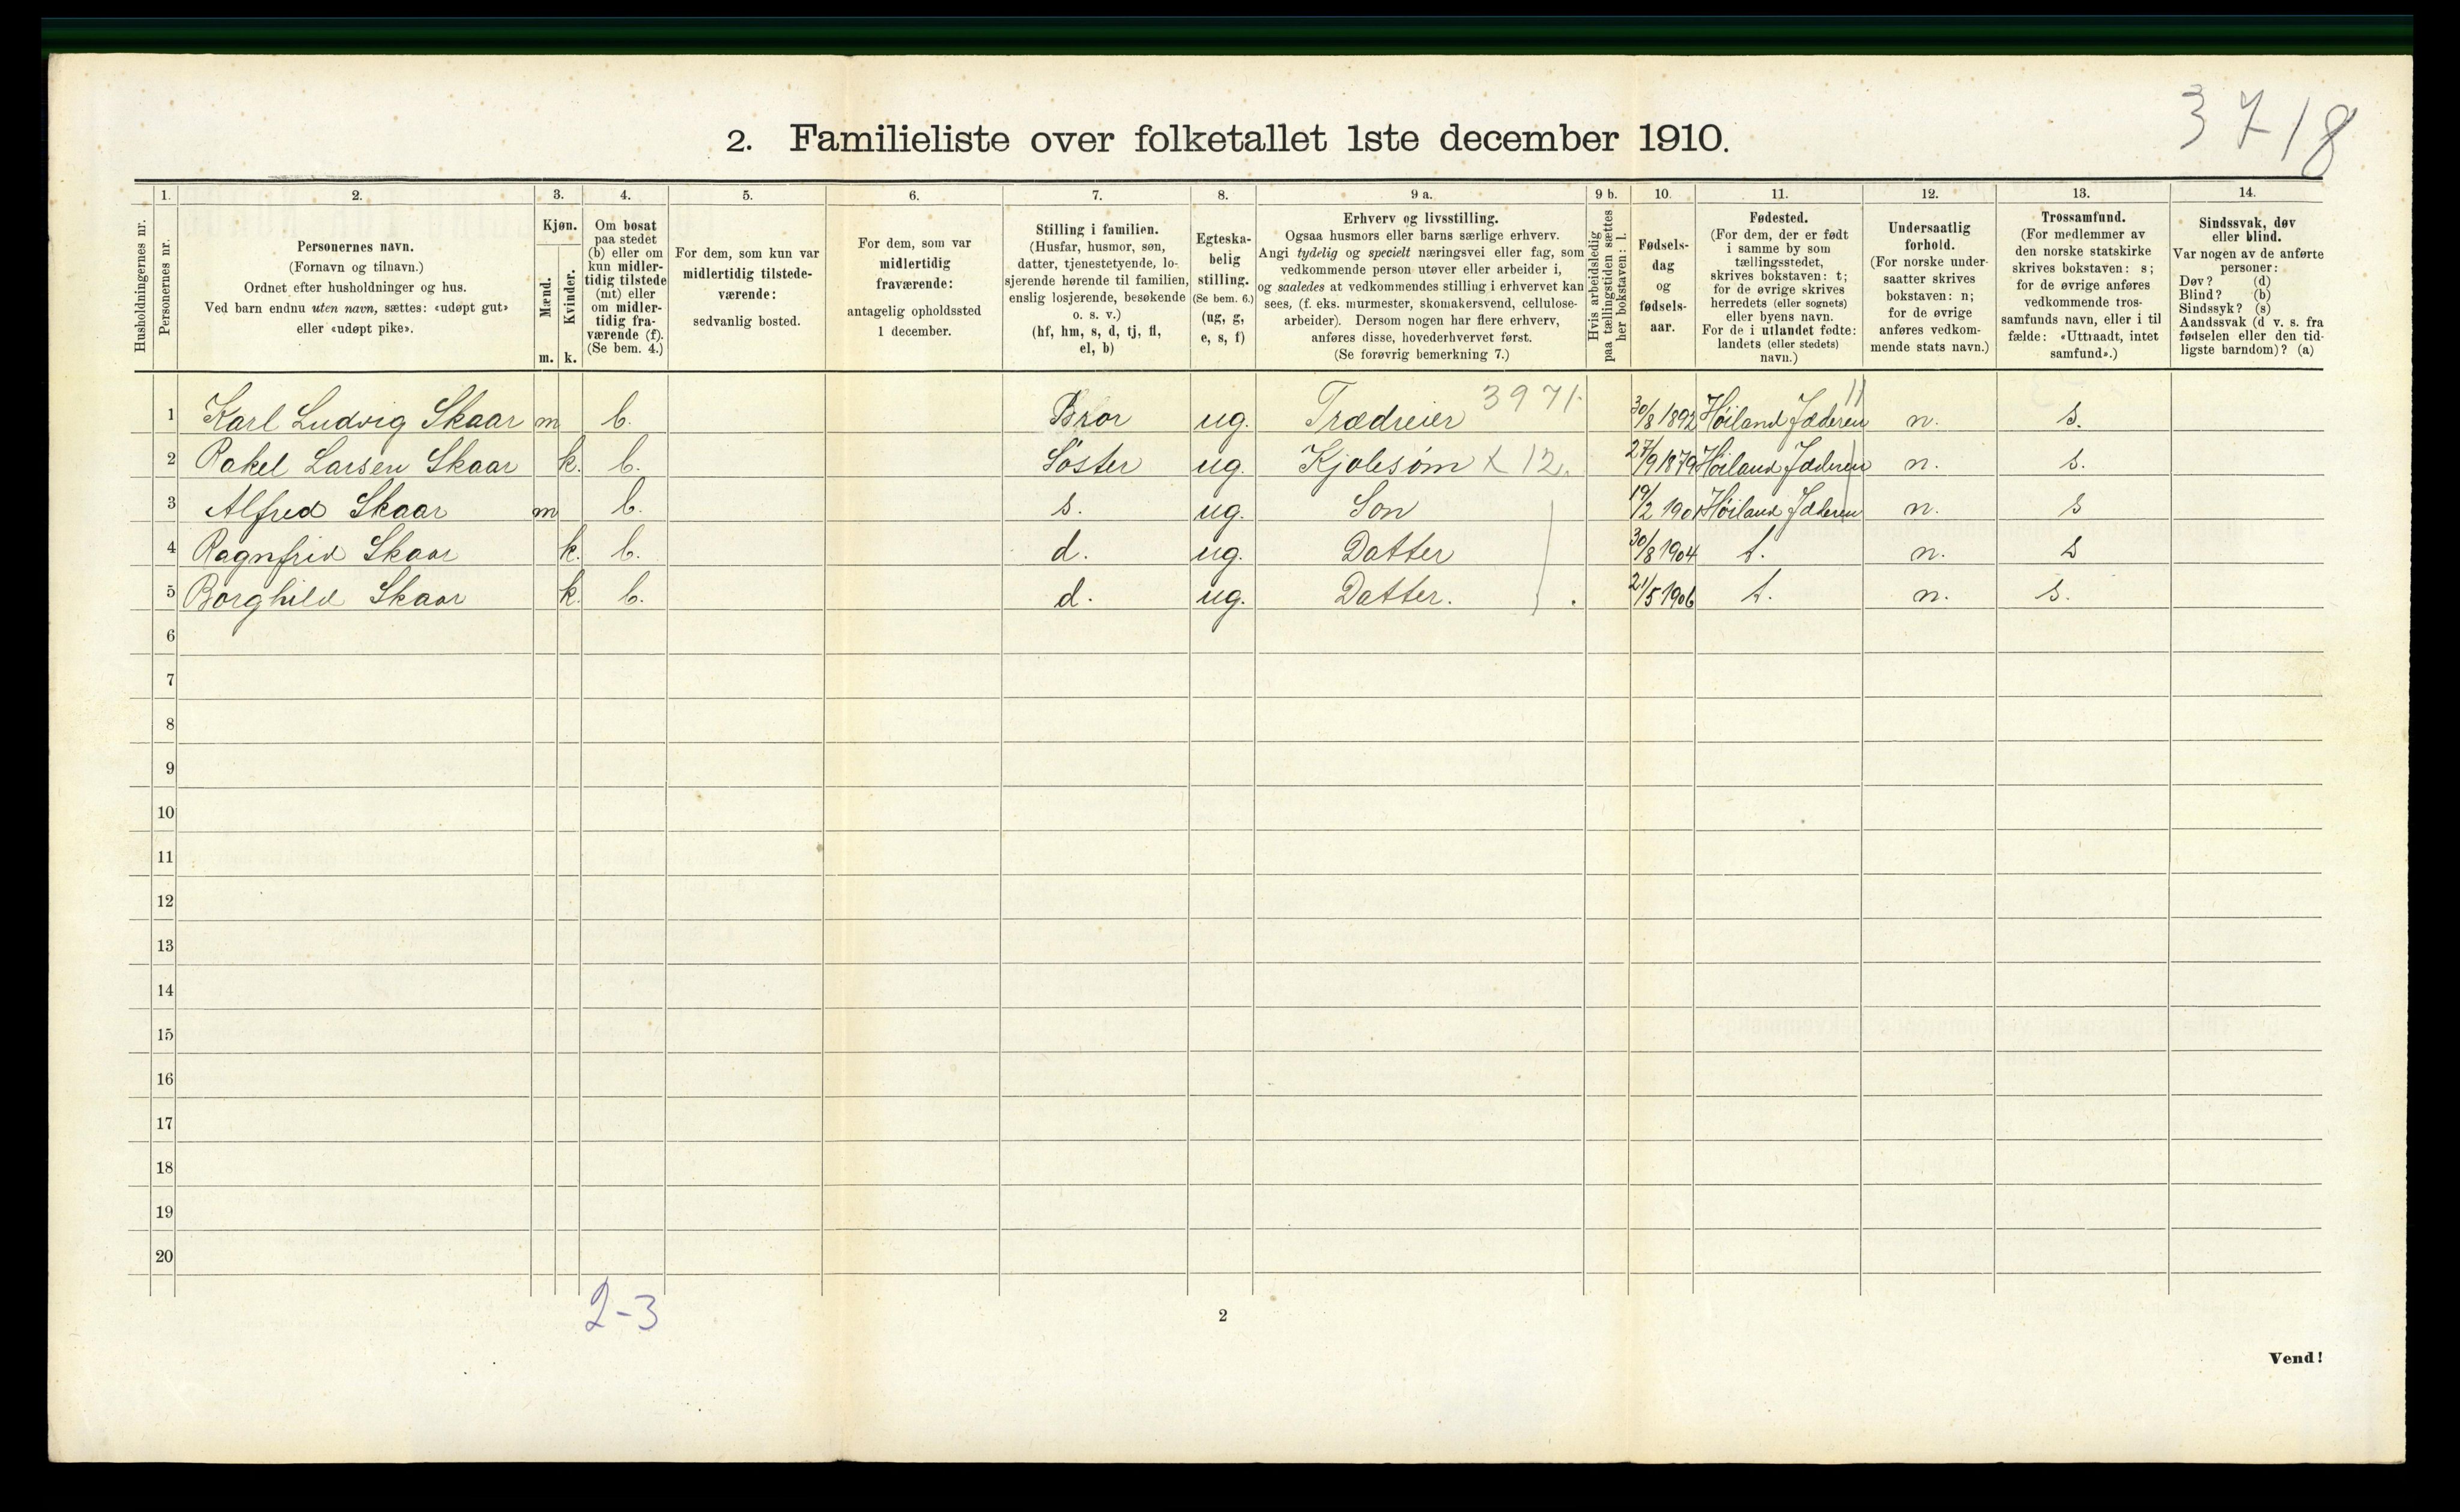 3718
2. Familieliste over folketallet 1ste december 1910.
Husholdningernes nr.
1.
Personernes nr.
2.
Personernes navn.
(Fornavn og tilnavn.)
Ordnet efter husholdninger og hus.
Ved barn endnu uten navn, sættes: «udøpt gut»
eller «udøpt pike».
3.
Kjøn.
Mænd.
Kvinder.
m. k.
4.
Om bosat
paa stedet
(b) eller om
kun midler-
tidig tilstede
(mt) eller
om midler-
tidig fra-
værende (f).
(Se bem. 4.)
5.
For dem, som kun var
midlertidig tilstede-
værende:
sedvanlig bosted.
6.
For dem, som var
midlertidig
fraværende:
antagelig opholdssted
1 december.
7.
Stilling i familien.
(Husfar, husmor, søn,
datter, tjenestetyende, lo-
sjerende hørende til familien,
enslig losjerende, besøkende
o. s. v.)
(hf, hm, s, d, tj, fl,
el, b)
8.
Egteska-
belig
stilling.
(Se bem. 6.)
(ug, g,
e, s, f)
9 a.
Erhverv og livsstilling.
Ogsaa husmors eller barns særlige erhverv.
Angi tydelig og specielt næringsvei eller fag, som
vedkommende person utøver eller arbeider i,
og saaledes at vedkommendes stilling i erhvervet kan
sees, (f. eks. murmester, skomakersvend, cellulose-
arbeider). Dersom nogen har flere erhverv,
anføres disse, hovederhvervet først.
(Se forøvrig bemerkning 7.)
9 b.
Hvis arbeidsledig
paa tællingstiden sættes
her bokstaven: l.
10.
Fødsels-
dag
og
fødsels-
aar.
11.
Fødested.
(For dem, der er født
i samme by som
tællingsstedet,
skrives bokstaven: t;
for de øvrige skrives
herredets (eller sognets)
eller byens navn.
For de i utlandet fødte:
landets (eller stedets)
navn.)
12.
Undersaatlig
forhold.
(For norske under-
saatter skrives
bokstaven: n;
for de øvrige
anføres vedkom-
mende stats navn.)
13.
Trossamfund.
(For medlemmer av
den norske statskirke
skrives bokstaven: s;
for de øvrige anføres
vedkommende tros-
samfunds navn, eller i til
fælde: «Uttraadt, intet
samfund».)
14.
Sindssvak, døv
eller blind.
Var nogen av de anførte
personer:
Døv? (d)
Blind? (b)
Sindssyk? (s)
Aandssvak (d v. s. fra
fødselen eller den tid-
ligste barndom)? (a)
1 Karl Ludvig Skaar m b. Bror ug. Trædreier 3971. 30/8 1892 Høiland Jæderen n. s.
2 Rakel Larsen Skaar k. b. Søster ug. Kjolesøm X 12. 27/9 1879 Høiland Jæderen n. s.
3 Alfred Skaar m b. s. ug. Søn 19/2 1901 Høiland Jæderen n. s
4 Ragnfrid Skaar k. b. d. ug. Datter 30/8 1904 t. n. s
5 Borghild Skaar k. b. d. ug. Datter. 21/5 1906 t. n. s.
6
7
8
9
10
11
12
13
14
15
16
17
18
19
20
2-3
2
Vend!